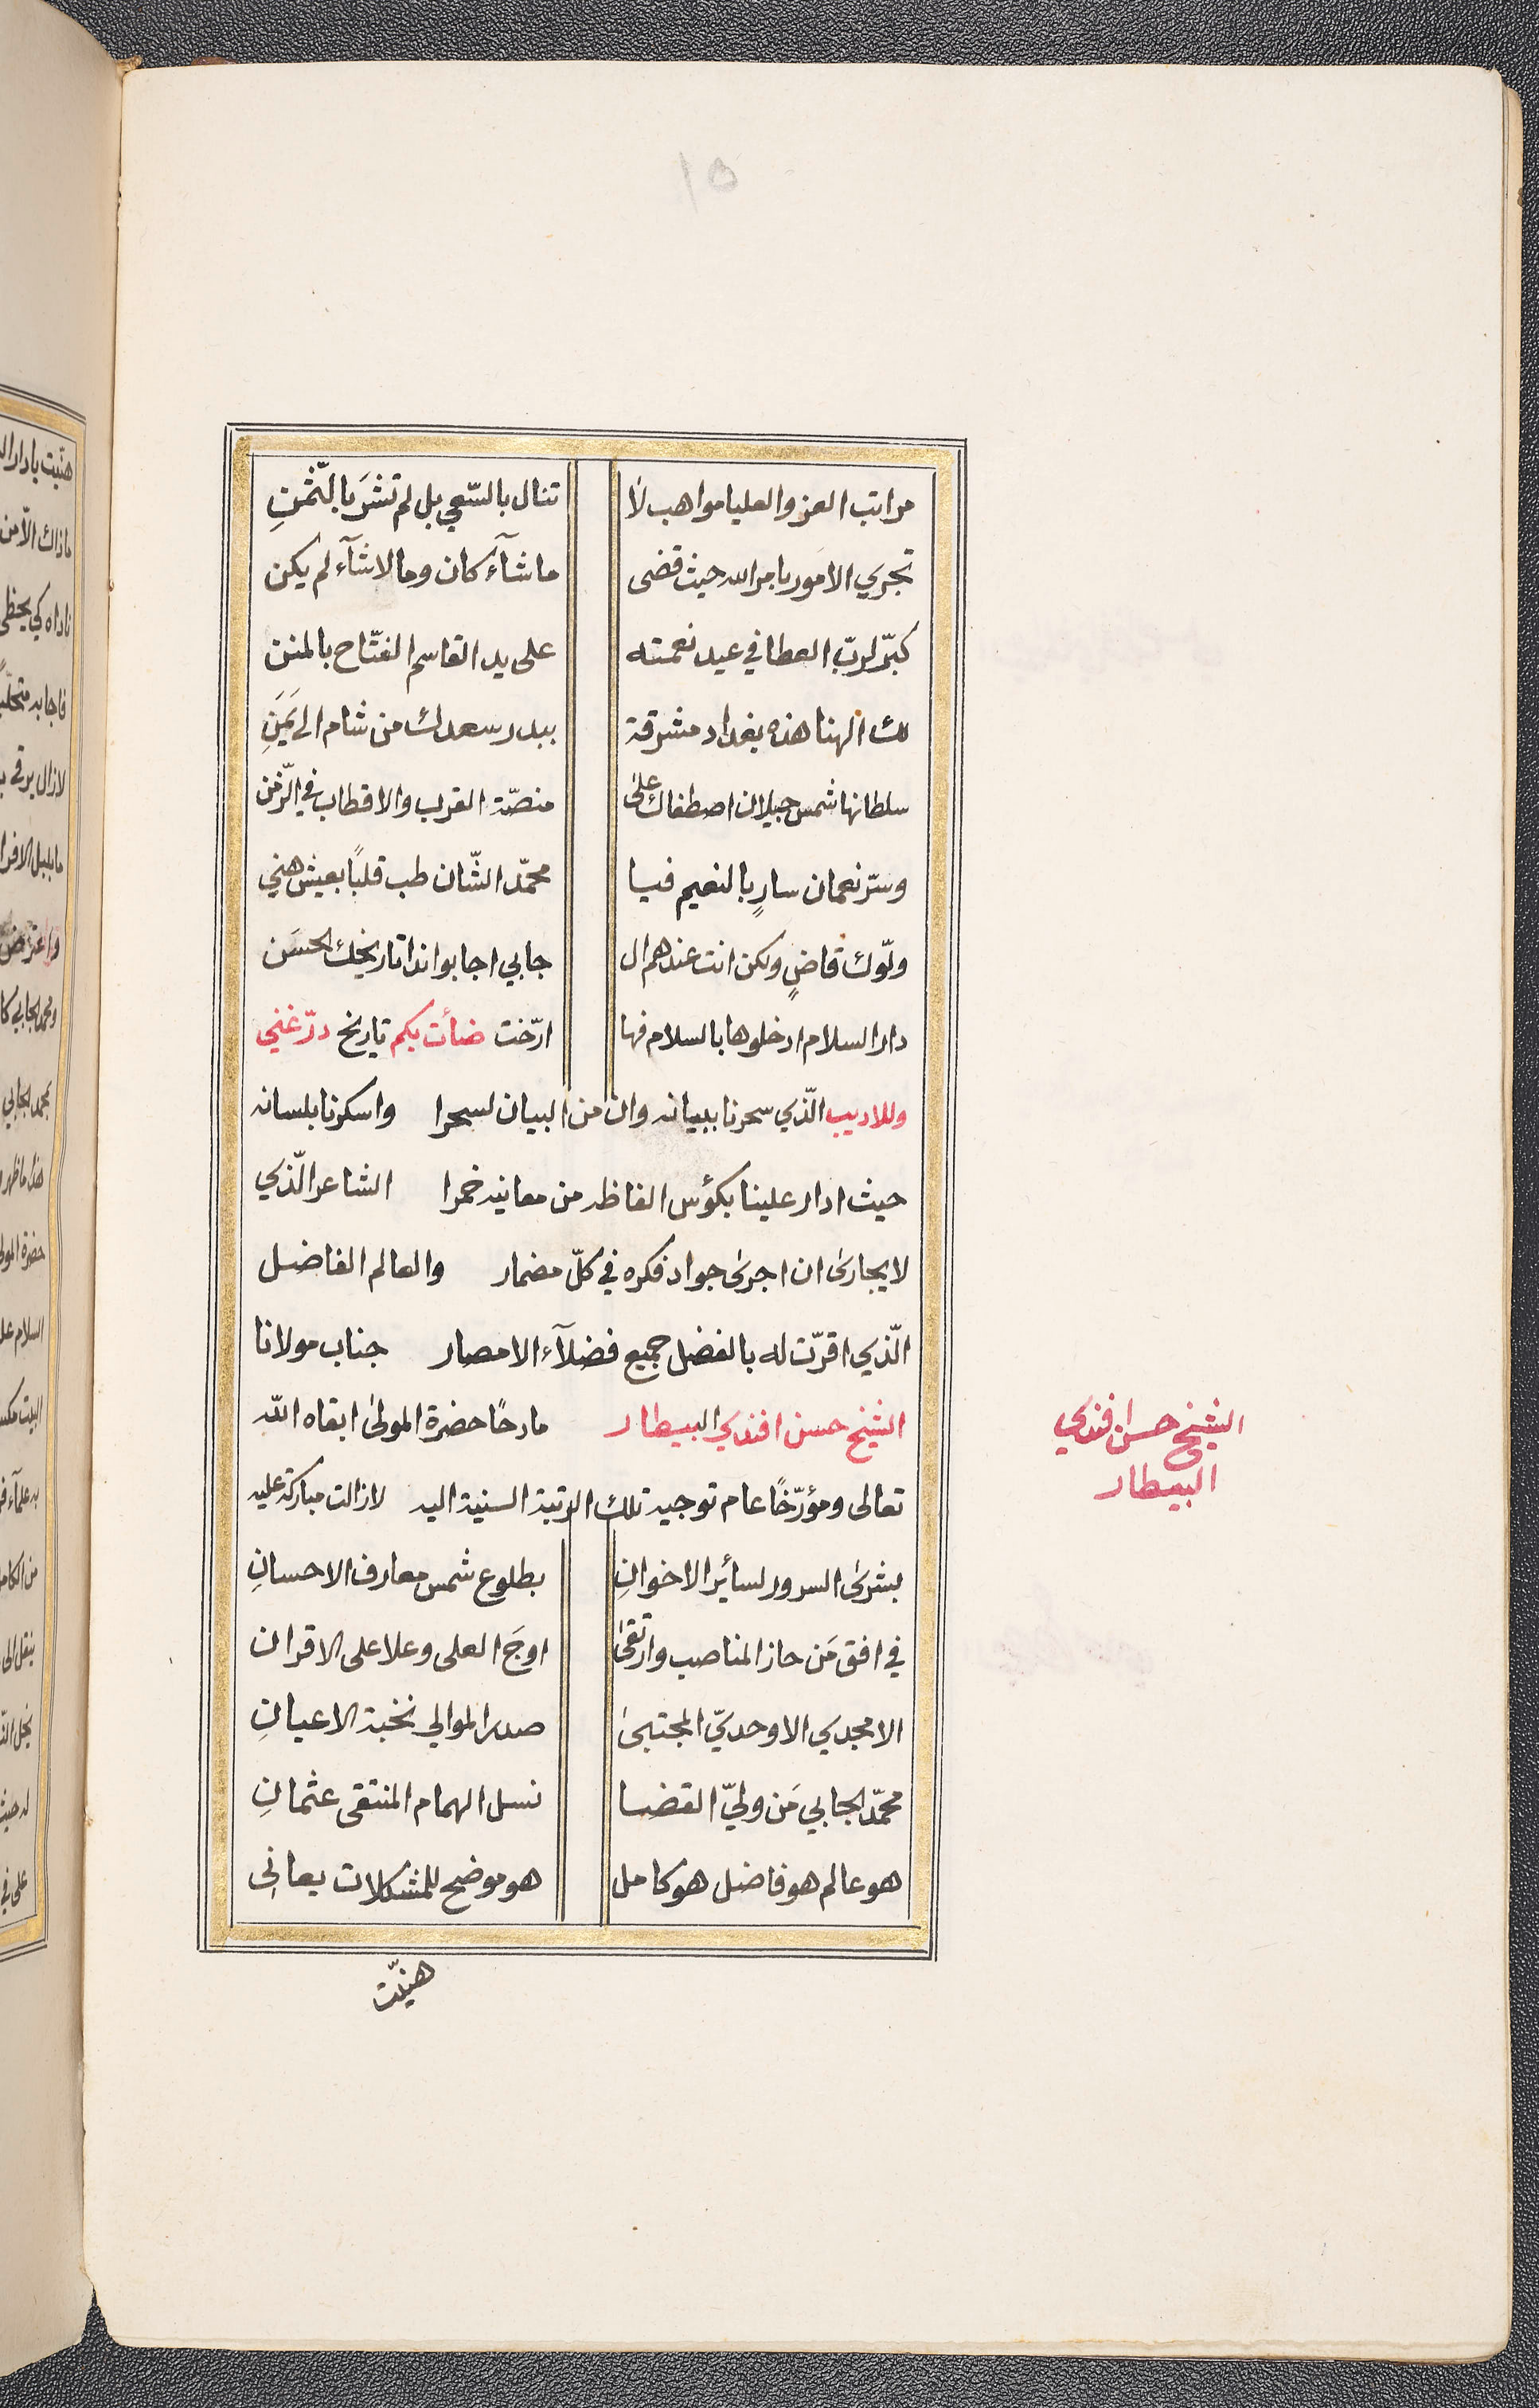 ١٥
مراتب العز والعليا مواهب لا تنال بالسّعي بل لم تشرَ بالثّمنِ
تجري الامور بامر الله حيث قضى ما شآء كان وما لا شآء لم يكن
كبّر لربّ العطا في عيد نعمته على يد القاسم الفتّاح بالمنن
لك الهنا هذه بغداد مشرقة ببدر سعدك من شام الى يَمَنِ
سلطانها شمس جيلان اصطفاك على منصّة القرب والاقطاب في الزّمن
وسرّ نعمان سارٍ بالنعيم فيا محمّد الشّان طب قلبًا بعيش هني
ولّوك قاضٍ ولكن انت عندهم ال جابي اجابوا ندا تاريخك الحسَن
دار السلام ادخلوها بالسلام فها ارّخت ضأت بكم تاريخ درّ غني
وللاديب الّذي سحرنا ببيانه وان من البيان لسحرا واسكرنا بلسانه
حيث ادار علينا بكؤس الفاظه من معانيه خمرا الشاعر الّذي
لا يجارى ان اجرى جواد فكره في كلّ مضمار والعالم الفاضل
الّذي اقرّت له بالفضل جميع فضلآء الامصار جناب مولانا
الشيخ حسن افندي البيطار مادحًا حضرة المولى ابقاه الله
تعالى ومؤرّخًا عام توجيه تلك الرتبة السنية اليه لازالت مباركة عليه
بشرى السرور لسائر الاخوانِ بطلوع شمس معارف الاحسانِ
في افق مَن حاز المناصب وارتقى اوجَ العلى وعلا على الاقران
الامجدي الاوحديّ المجتبى صدر الموالي نخبة الاعيانِ
محمّد الجابي مَن وليّ القضا نسل الهمام المنتقى عثمانِ
هو عالم هو فاضل هو كامل هو موضح للمشكلات يعانى
هنيّت
الشيخ حسن افندي
البيطار